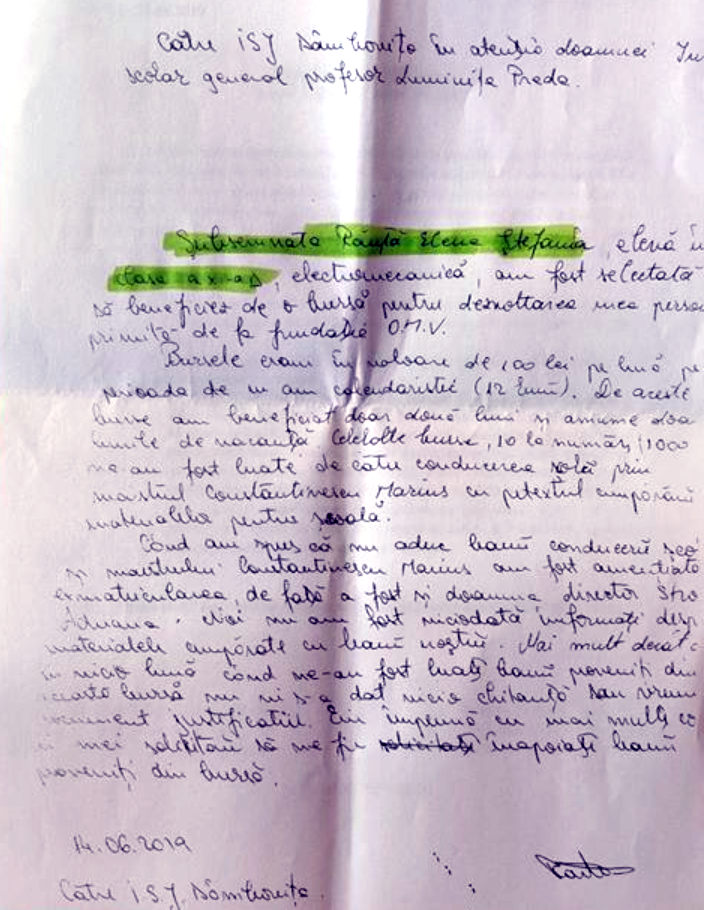 Către ISJ Dâmbovița în atenția doamnei In
școlar general profesor Luminița Preda.
Subsemnata Răuță Elena Ștefania, elevă în
clasa a XI-a D, electromecanică, am fost selectată
să beneficiez de o bursă pentru dezvoltarea mea perso
primită de la fundația O.M.V.
Bursele erau în valoare de 100 lei pe lună pe
perioada de un an calendaristic (12 luni). De aceste
burse am beneficiat doar două luni și anume doa
lunile de vacanță. Celelalte burse, 10 la număr, (1000
ne-au fost luate de către conducerea prin
maistrul Constantinescu Marius cu pretextul cumpărării
materialelor pentru școală.
Când am spus că nu aduc banii conducerii șco
și maistrului Constantinescu Marius am fost amenințată
exmatricularea, de față a fost și doamna director
Adriana. Noi nu am fost niciodată informați desp
materialele cumpărate cu banii noștrii. Mai mult decât
în nicio lună când ne-au fost luați banii proveniți din
această bursă nu ni s-a dat nicio chitanță sau vreun
document justificativ. Eu împreună cu mai mulți co
ei mei solicităm să ne fie înapoiați banii
proveniți din bursă.
14.06.2019
Către I.S.J. Dâmbovița.